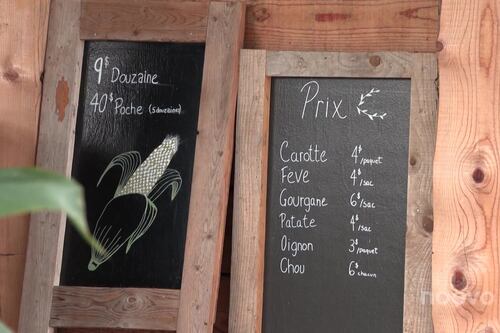 9$ Douzaine
40$ Poche (5 douzaine)
Prix
Carotte 4$/paquet
Feve 4$/sac
Gourgane 6$/sac
Patate 4$/sac
Oignon 3$/paquet
Chou 6$ chacun
novo